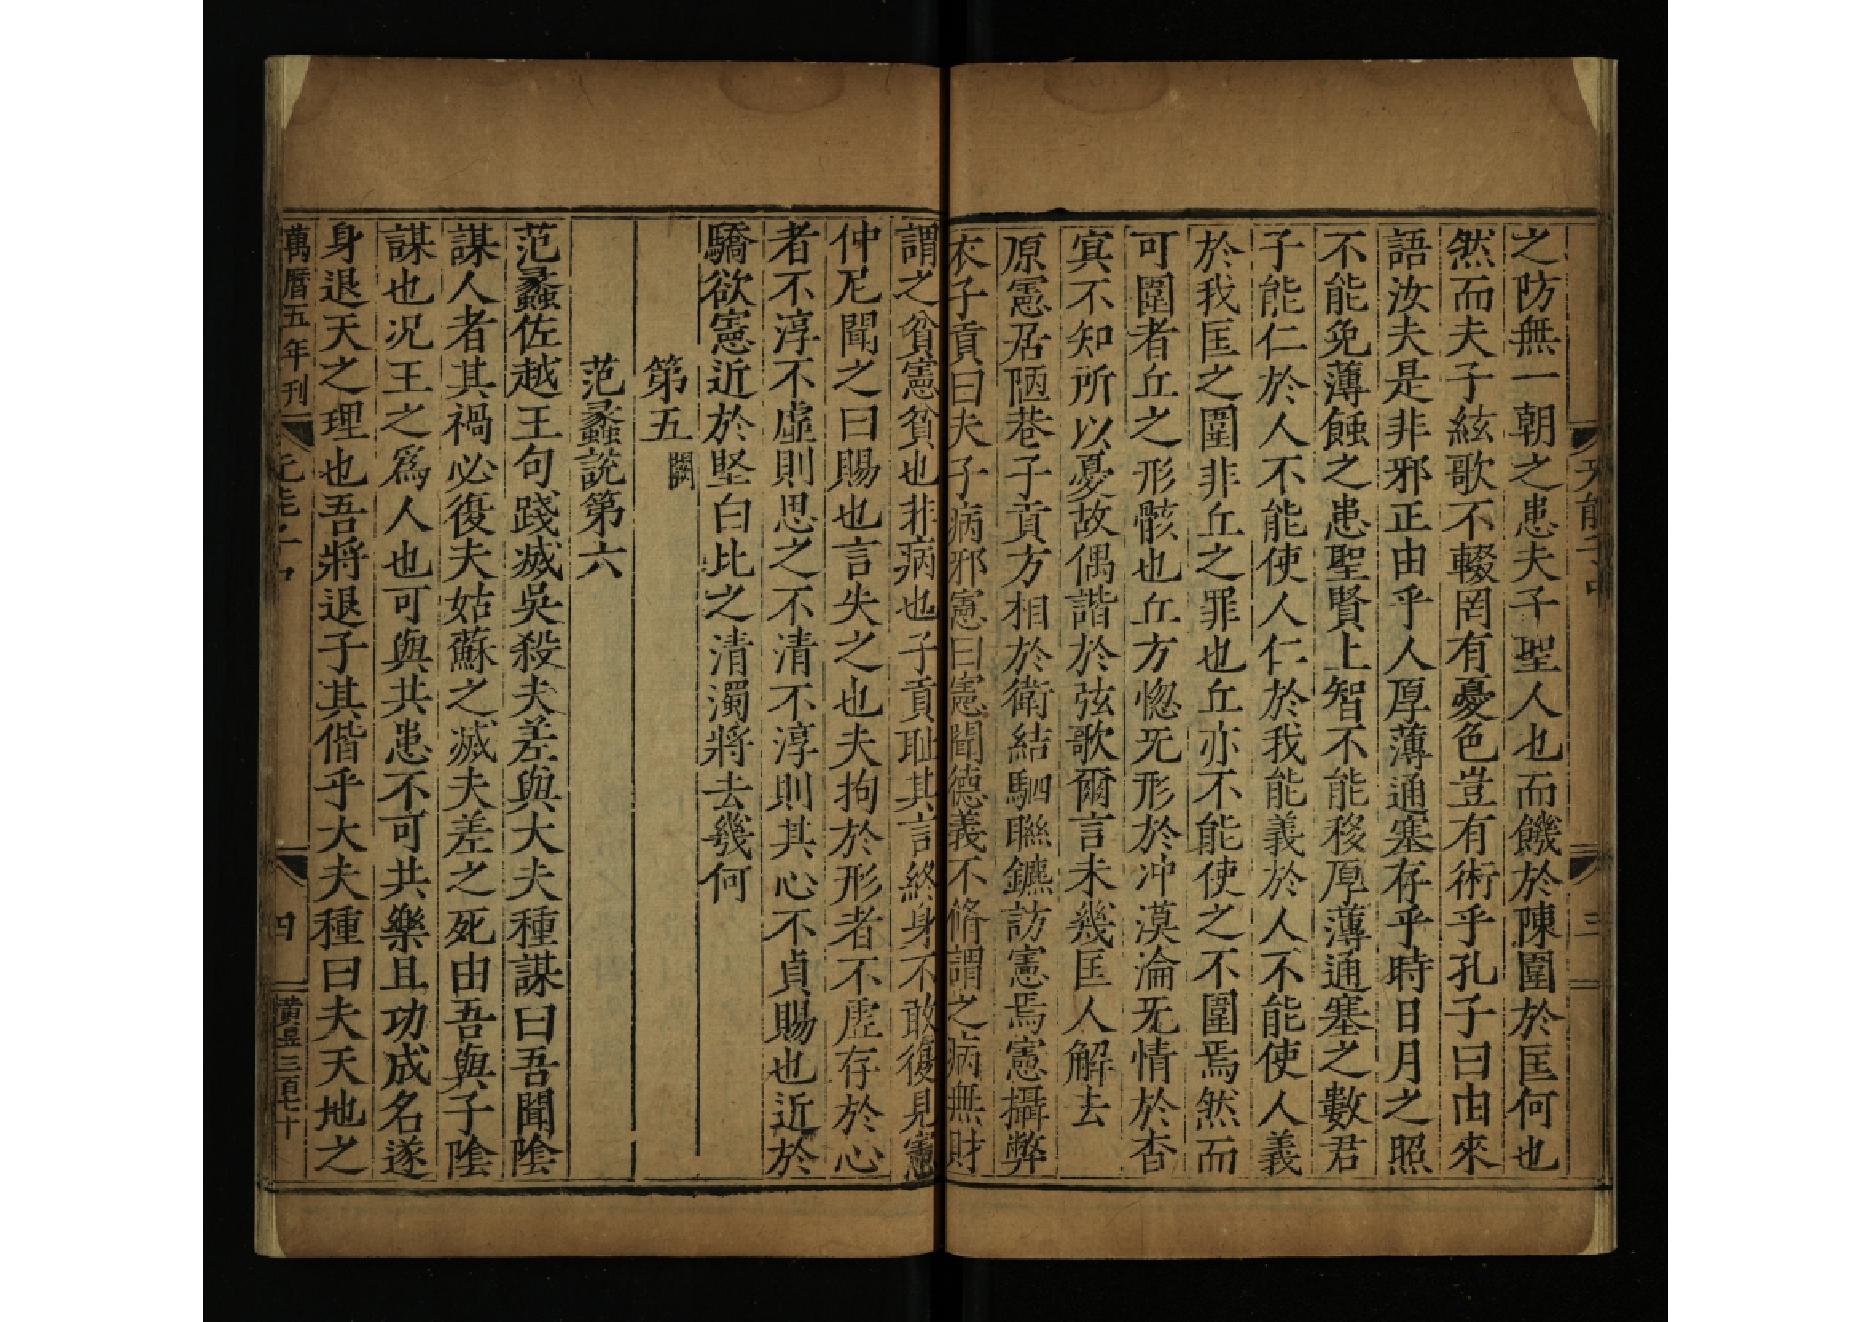 无能子中
三
之防無一朝之患夫子聖人也而饑於陳圍於匡何也
然而夫子絃歌不輟罔有憂色豈有術乎孔子曰由來
語汝夫是非邪正由乎人厚薄通塞存乎時日月之照
不能免薄蝕之患聖賢上智不能移厚薄通塞之數君
子能仁於人不能使人仁於我能義於人不能使人義
於我匡之圍非丘之罪也丘亦不能使之不圍焉然而
可圍者丘之形骸也丘方惚无形於冲漠淪无情於杳
冥不知所以憂故偶諧於弦歌爾言未幾匡人解去
原憲居陋巷子貢方相於衛結駟聯鑣訪憲焉憲攝弊
衣子貢曰夫子病邪憲曰憲聞德義不脩謂之病無財
謂之貧憲貧也非病也子貢耻其言終身不敢復見憲
仲尼聞之曰賜也言失之也夫拘於形者不虛存於心
者不淳不虛則思之不清不淳則其心不貞賜也近於
驕欲憲近於堅白比之清濁將去幾何
第五闕
范蠡說第六
范蠡佐越王句踐滅吳殺夫差與大夫種謀曰吾聞陰
謀人者其禍必復夫姑蘇之滅夫差之死由吾與子陰
謀也况王之爲人也可與共患不可共樂且功成名遂
身退天之理也吾將退子其偕乎大夫種曰夫天地之
萬曆五年刊
无能子中
四
黄昱三百七十